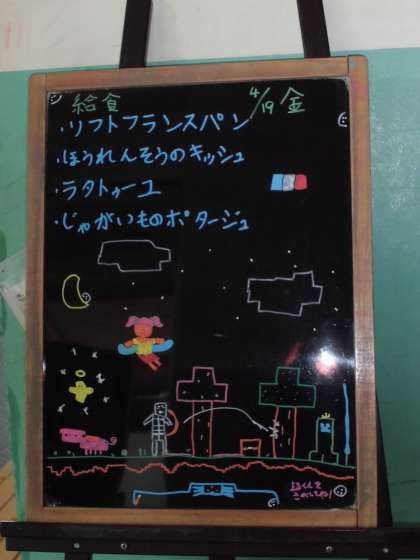 給食 4/19 金
・ソフトフランスパン
・ほうれんそうのキッシュ
・ラタトゥーユ
・じゃがいものポタージュ